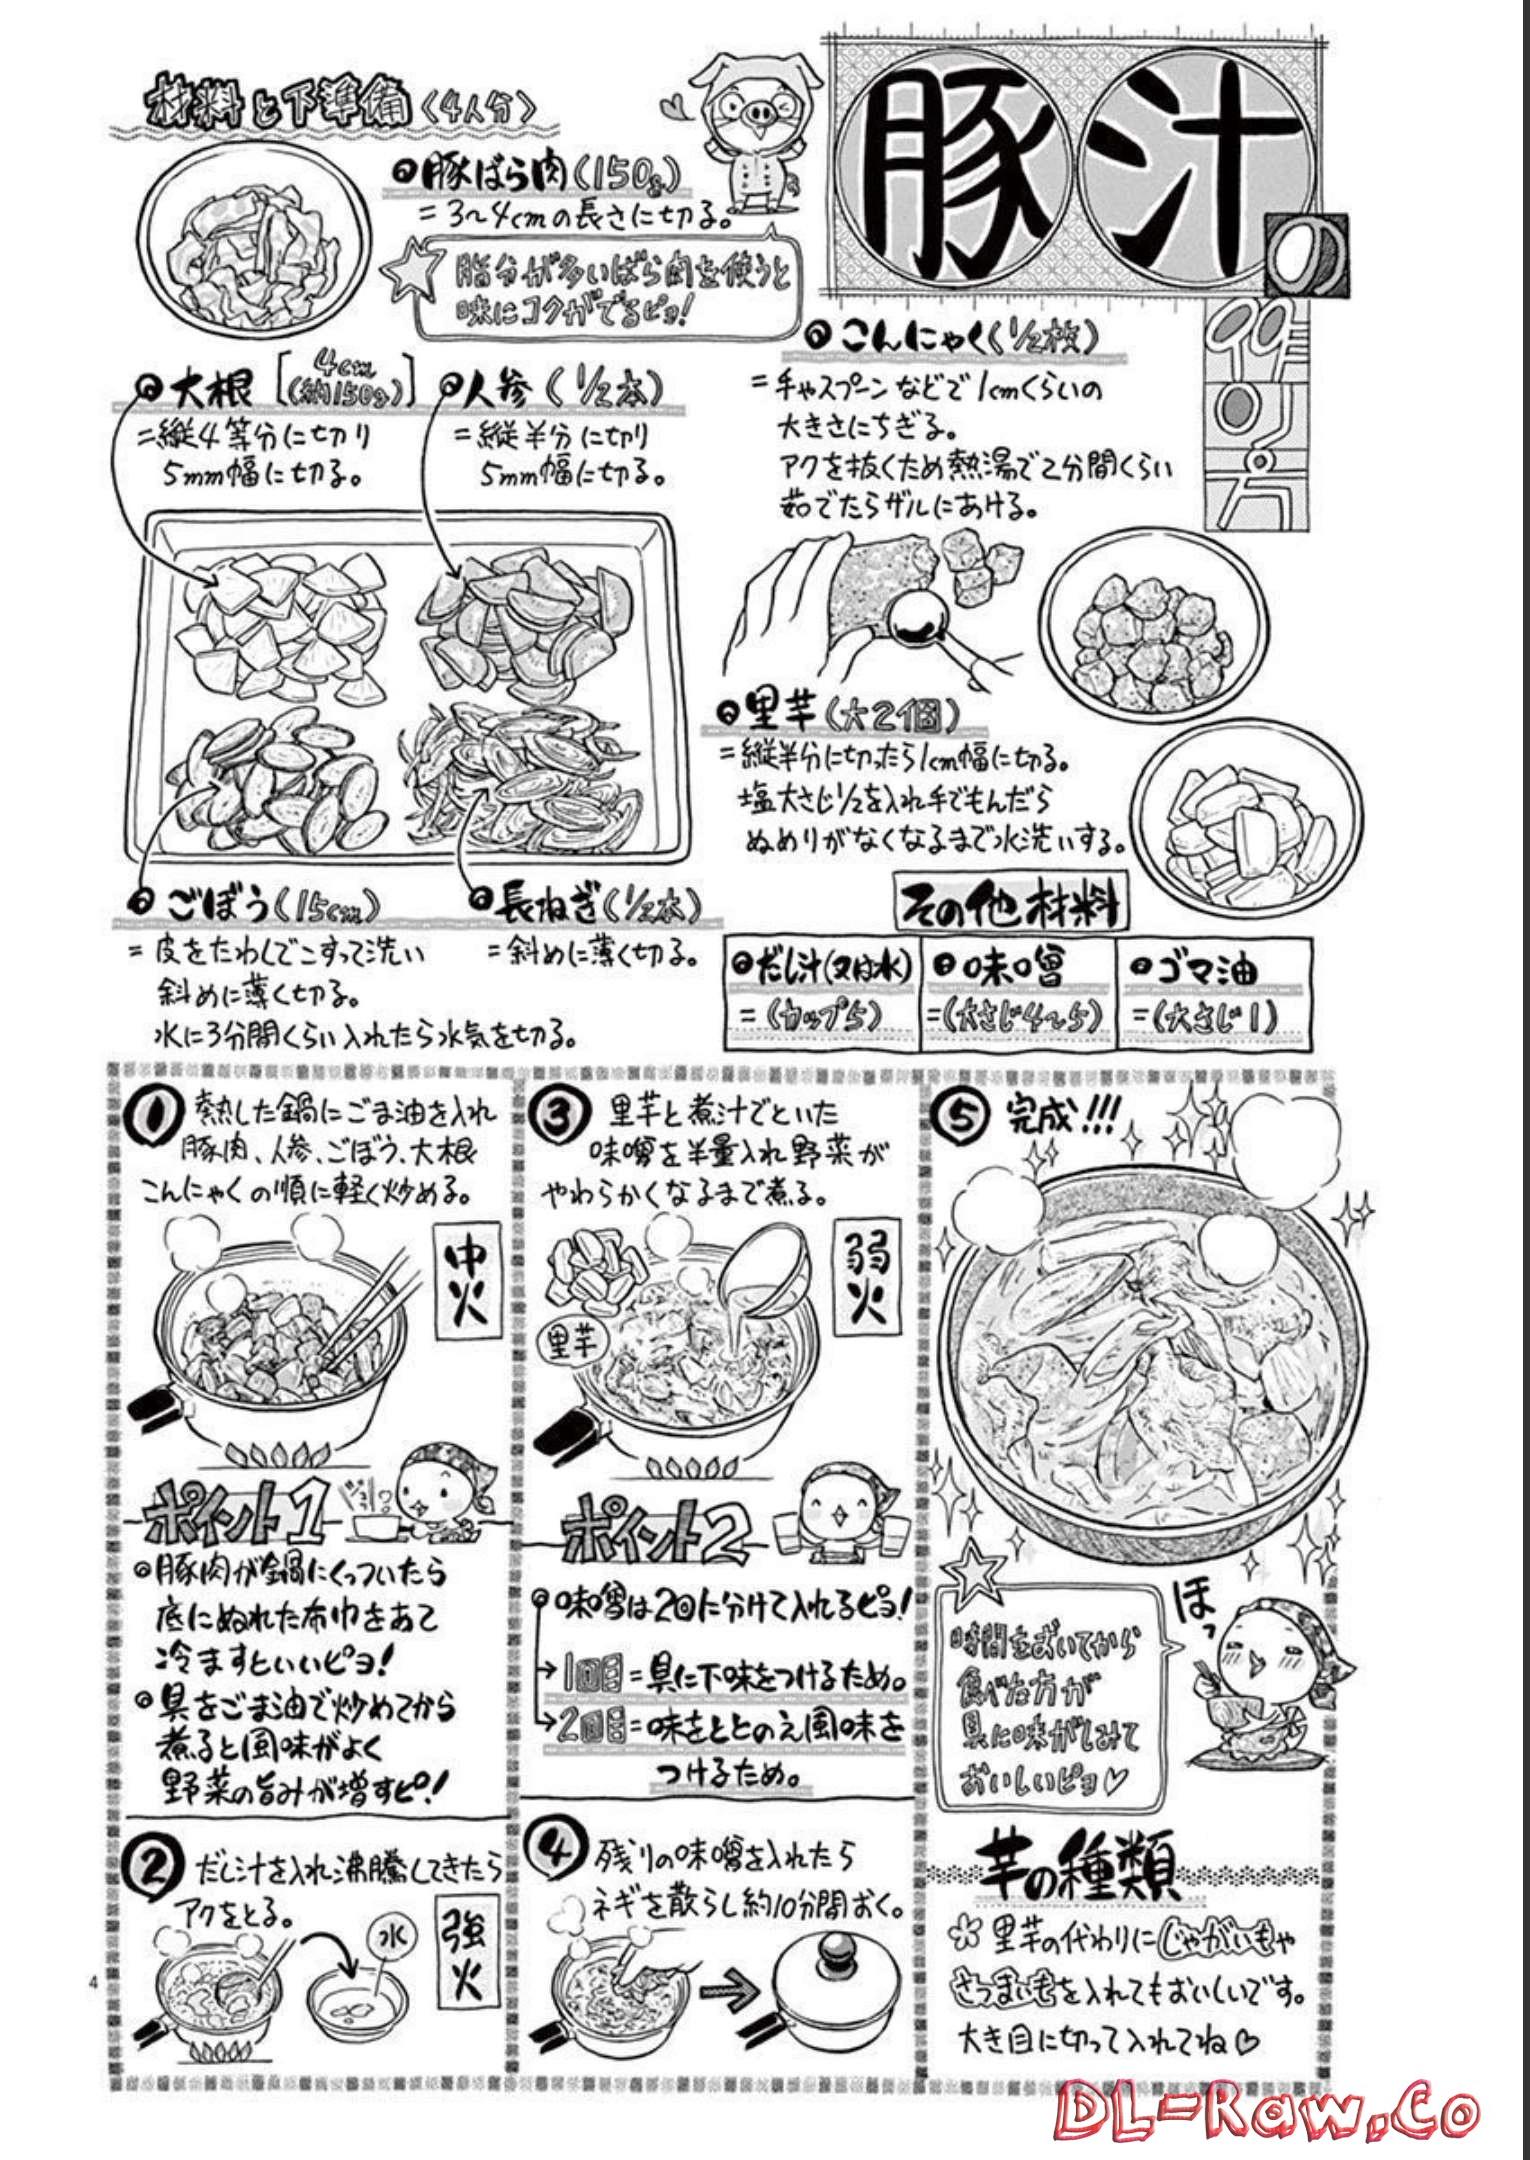 豚汁の
作り方
材料と下準備〈4人分〉
豚ばら肉(150g)
=3~4cmの長さに切る。
脂分が多いばら肉を使うと
味にコクがでるピヨ!
大根[4cm(約150g)]
=縦4等分に切り
5mm幅に切る。
人参(1/2本)
=縦半分に切り
5mm幅に切る。
こんにゃく(1/2枚)
=手やスプーンなどで1cmくらいの
大きさにちぎる。
アクを抜くため熱湯で2分間くらい
茹でたらザルにあける。
里芋(大2個)
=縦半分に切ったら1cm幅に切る。
塩大さじ1/2を入れ手でもんだら
ぬめりがなくなるまで水洗いする。
ごぼう(15cm)
=皮をたわしでこすって洗い
斜めに薄く切る。
水に3分間くらい入れたら水気を切る。
長ねぎ(1/2本)
=斜めに薄く切る。
その他材料
だし汁(又は水)
=(カップ5)
味噌
=(大さじ4~5)
ゴマ油
=(大さじ1)
1 熱した鍋にごま油を入れ
豚肉、人参、ごぼう、大根
こんにゃくの順に軽く炒める。
中火
ポイント1
豚肉が鍋にくっついたら
底にぬれた布巾をあて
冷ますといいピヨ!
具をごま油で炒めてから
煮ると風味がよく
野菜の旨みが増すピ!
2 だし汁を入れ沸騰してきたら
アクをとる。
水
強火
3 里芋と煮汁でといた
味噌を半量入れ野菜が
やわらかくなるまで煮る。
弱火
里芋
ポイント2
味噌は2回に分けて入れるピヨ!
1回目=具に下味をつけるため。
2回目=味をととのえ風味を
つけるため。
4 残りの味噌を入れたら
ネギを散らし約10分間おく。
5 完成!!!
ほっ
時間をおいてから
食べた方が
具に味がしみて
おいしいピヨ♡
芋の種類
里芋の代わりにじゃがいもや
さつまいもを入れてもおいしいです。
大き目に切って入れてね♡
4
DL-Raw.Co